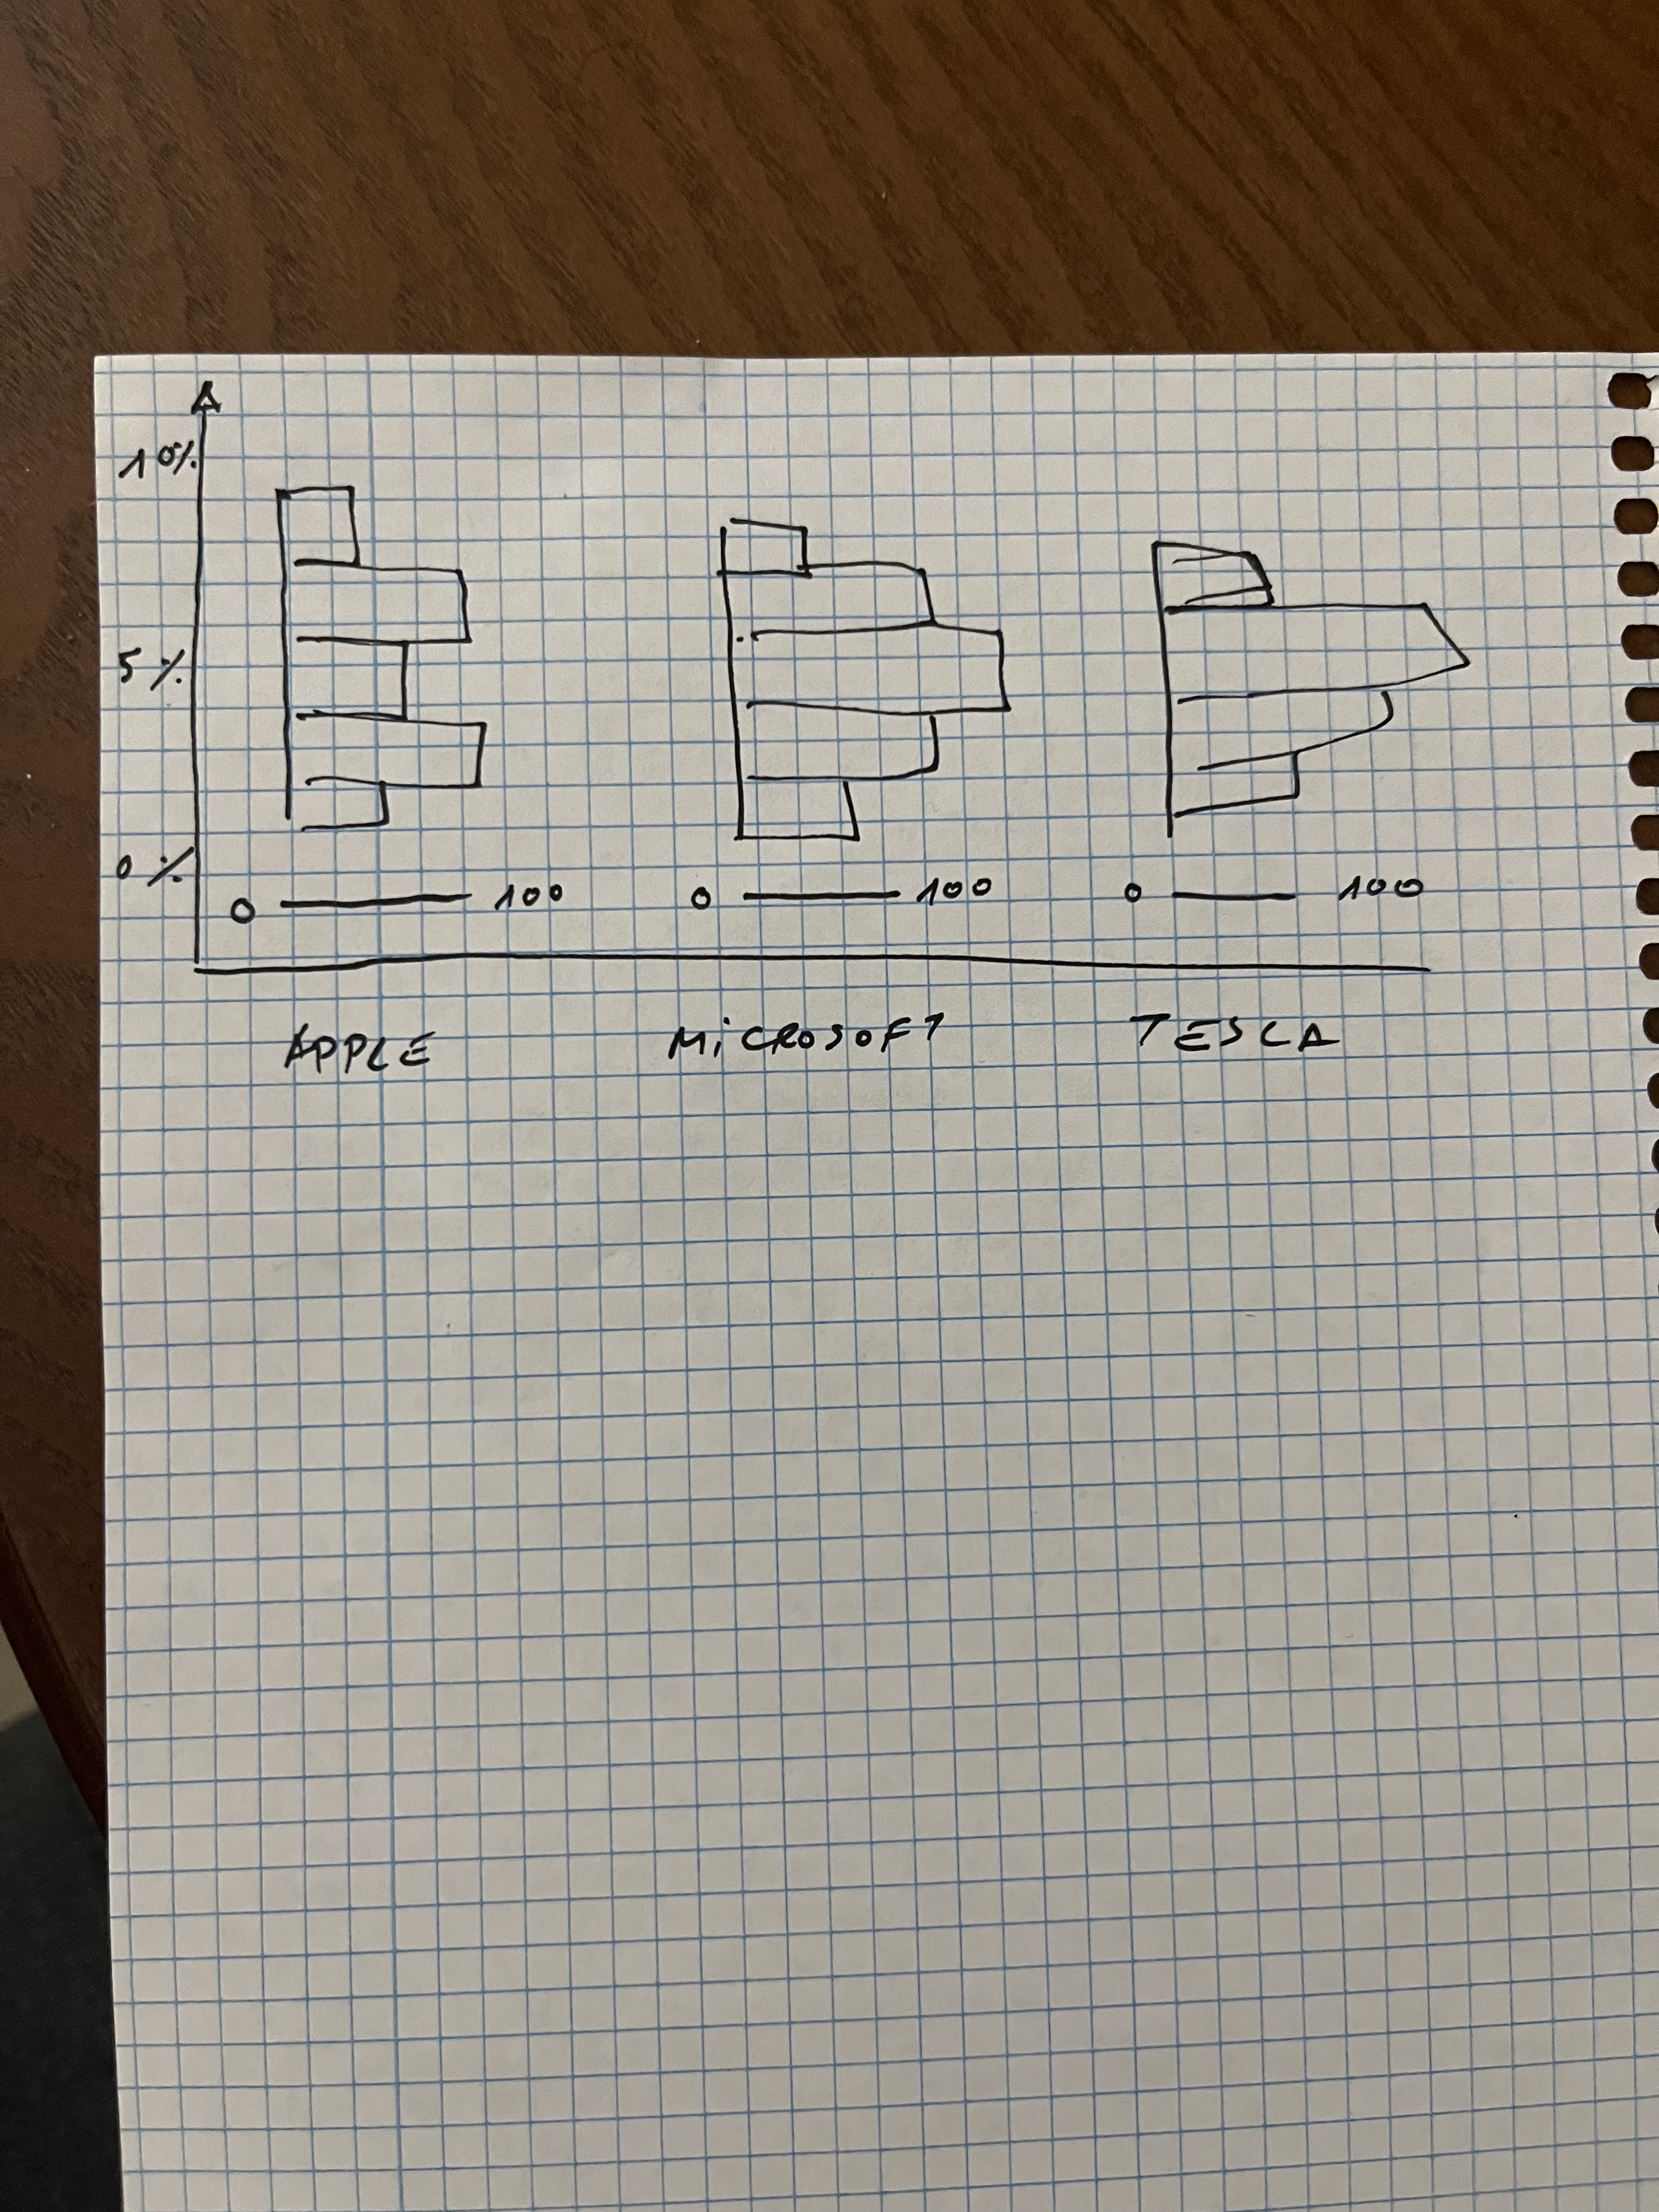 10%
5%
0%
0 100 0 100 0 100
APPLE MiCROSOFT TESLA